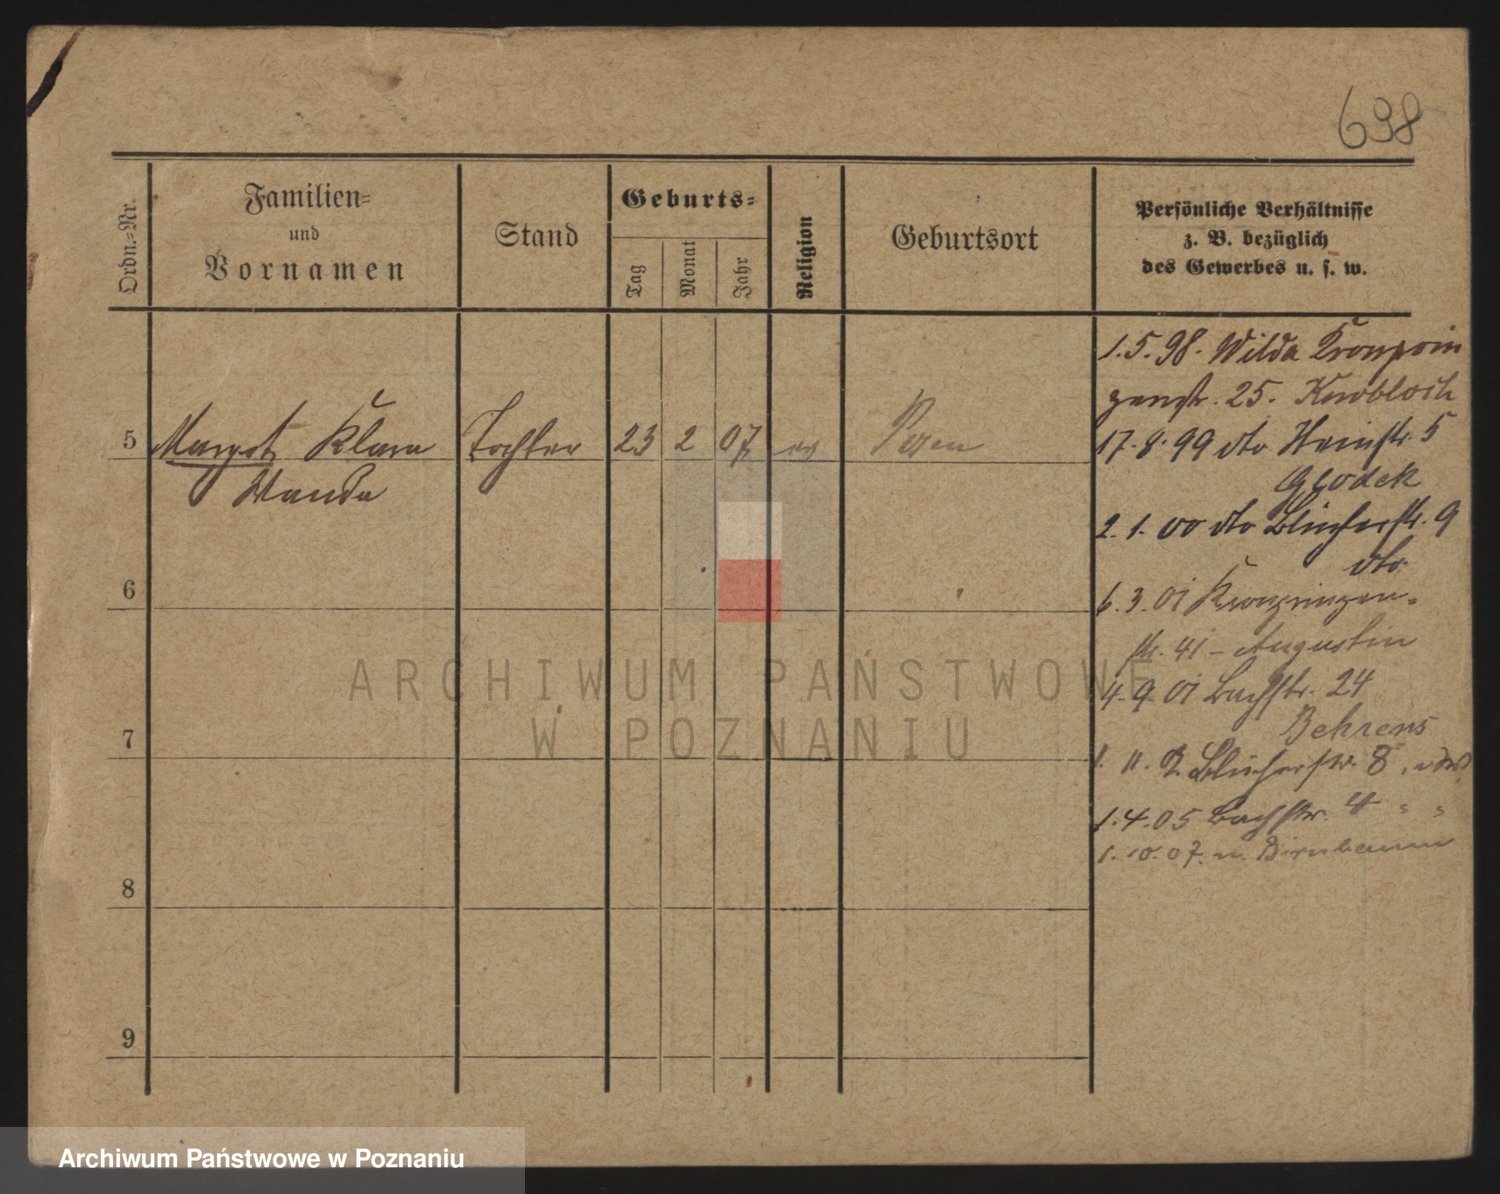 698
Ordn.-Nr.
Familien-
und
Vornamen
Stand
Geburts-
Tag
Monat
Jahr
Religion
Geburtsort
Persönliche Verhältnisse
z. B. bezüglich
des Gewerbes u. s. w.
5
Margot Klara
Wanda
Tochter
23
2
07
ev
Posen
6
7
8
9
1.5.98. Wilda Kronprin
zenstr. 25. Knobloch
17.8.99 dto Heinstr. 5
Glodek
2.1.00 dto Blücherstr. 9
dto.
6.3.01 Kronprinzen-
str. 41 - Augustin
4.9.01 Bachstr. 24
Behrens
1.11. Blücherstr. 8
1.4.05 Bachstr. 4 " "
1.10.07. n. Birnbaum
ARCHIWUM PAŃSTWOWE
W POZNANIU
Archiwum Państwowe w Poznaniu